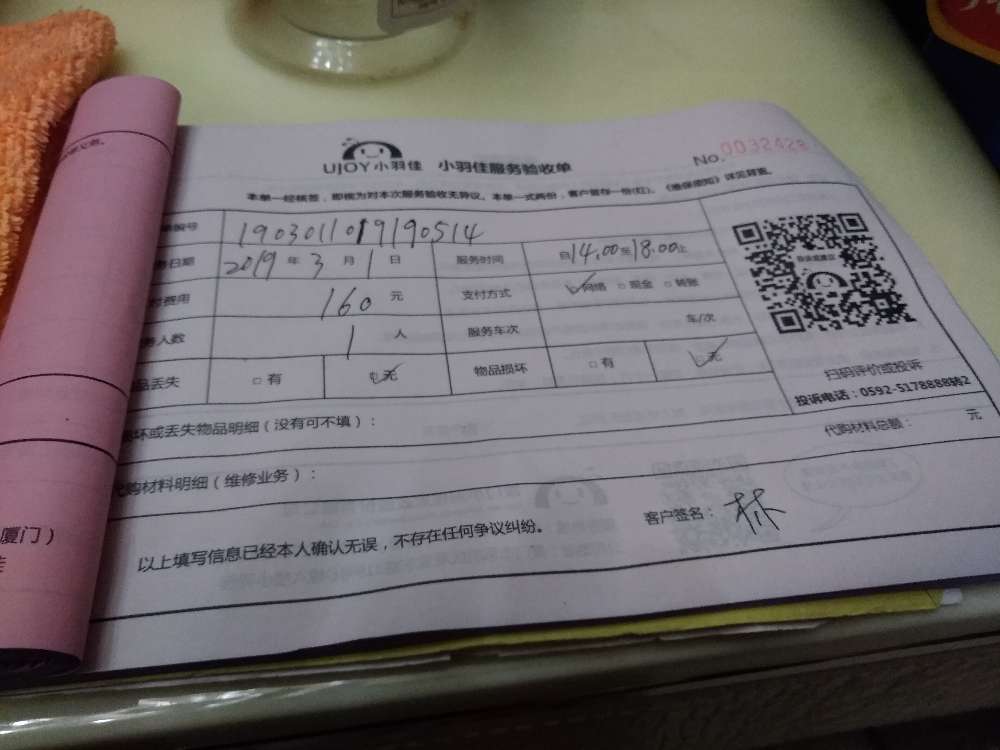 UJOY小羽佳 小羽佳服务验收单
No. 0032428
本单一经核签，即视为对本次服务验收无异议。本单一式两份，客户留存一份(红)。《维保须知》详见背面。
编号 1903011019190514
日期 2019 年 3 月 1 日 服务时间 自14.00至18.00止
费用 160 元 支付方式 网络 □ 现金 □ 转账
人数 1 人 服务车次 车/次
品丢失 □ 有 无 物品损坏 □ 有 无
扫码评价或投诉
投诉电话：0592-5178888转2
坏或丢失物品明细（没有可不填）：
代购材料总额： 元
代购材料明细（维修业务）：
以上填写信息已经本人确认无误，不存在任何争议纠纷。
客户签名：林
厦门）